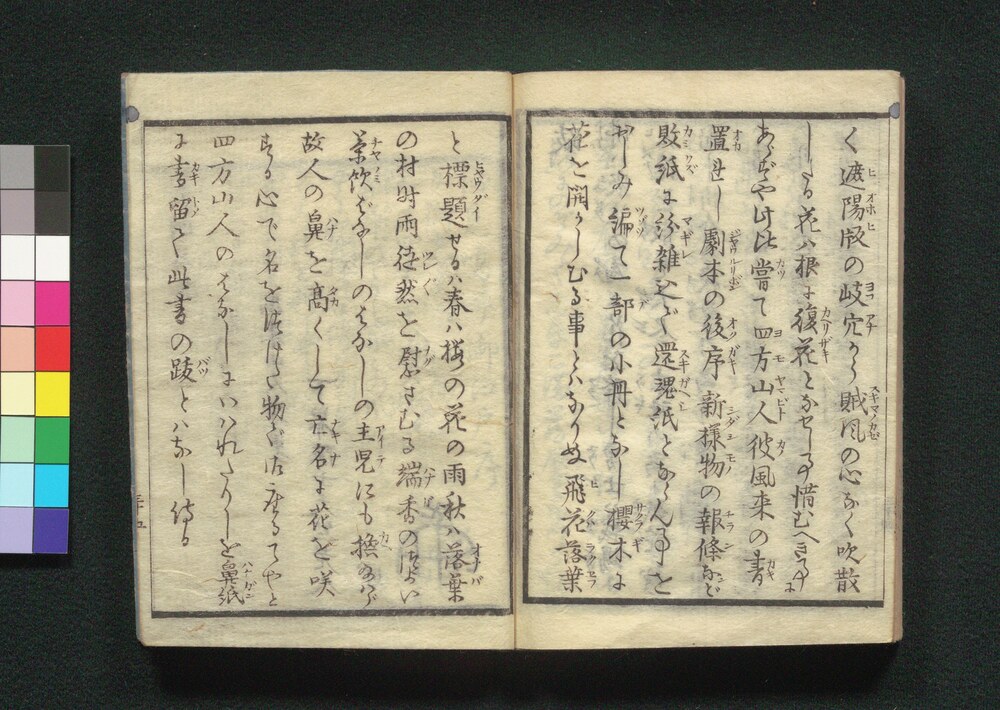 く遮陽版の岐穴から賊風の心なく吹散
したる花ハ根に復花となせし事惜むへき事に
あらずや此比嘗て四方山人彼風来の書
置れし劇本の後序新様物の報條など
敗紙に紛雑込で還魂紙とならん事を
おしみ編て一部の小冊となし櫻木に
花を開かしむる事とハなりぬ飛花落葉
と標題せるハ春ハ桜の花の雨秋ハ落葉
の村時雨徒然を慰さむる端香の
茶飲ばなしのはなしの主児にも換
故人の鼻を高くして亡名に花を咲
する心で名を
四方山人のはなしにいハれたりしを鼻紙
に書留て此書の跋とハなし侍る